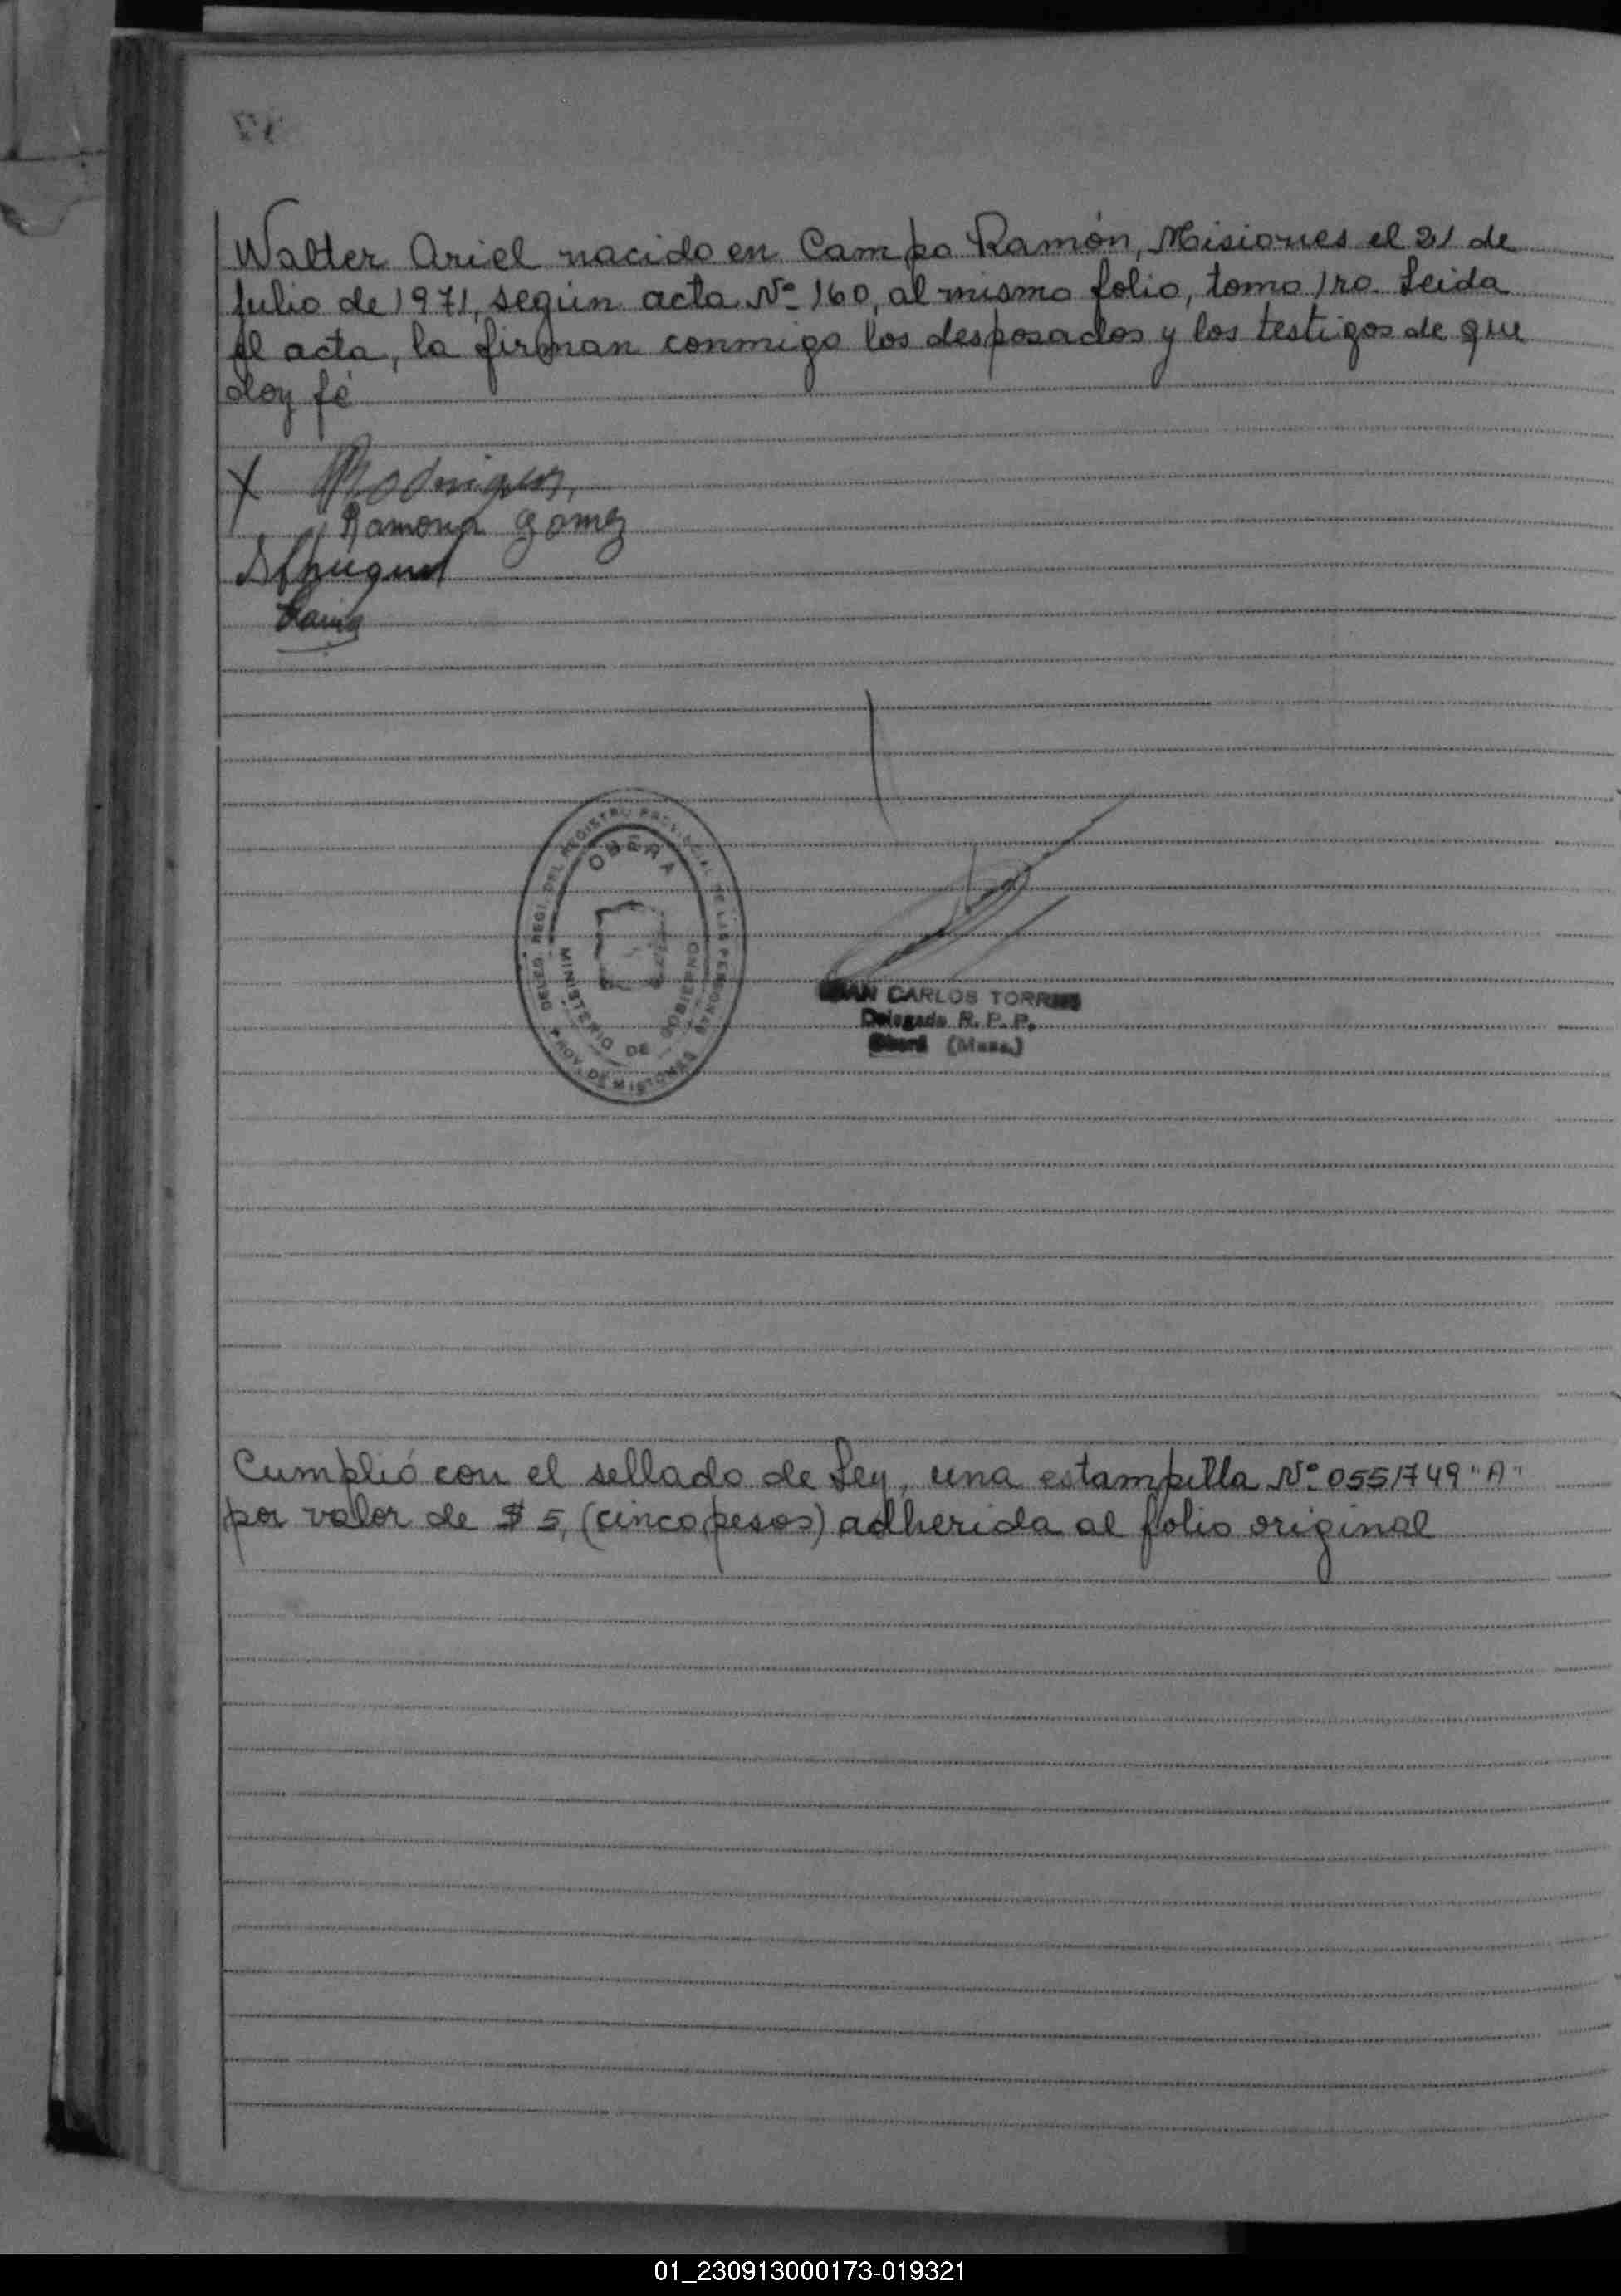 Walter Ariel nacido en Campo Ramón, Misiones el 21 de
Julio de 1971, según acta Nº 160, al mismo folio, tomo 1ro. Leida
el acta, la firman conmigo los desposados y los testigos de que
doy fé
X Rodriguez
Ramona Gomez
DELEG. REGI. DEL REGISTRO PROVINCIAL DE LAS PERSONAS
OBERA
MINISTERIO DE GOBIERNO
PROV. DE MISIONES
JUAN CARLOS TORRES
Delegado R. P. P.
Oberá (Mnes.)
Cumplió con el sellado de Ley, una estampilla Nº 0551749 "A"
por valor de $ 5, (cinco pesos) adherida al folio original
01_230913000173-019321